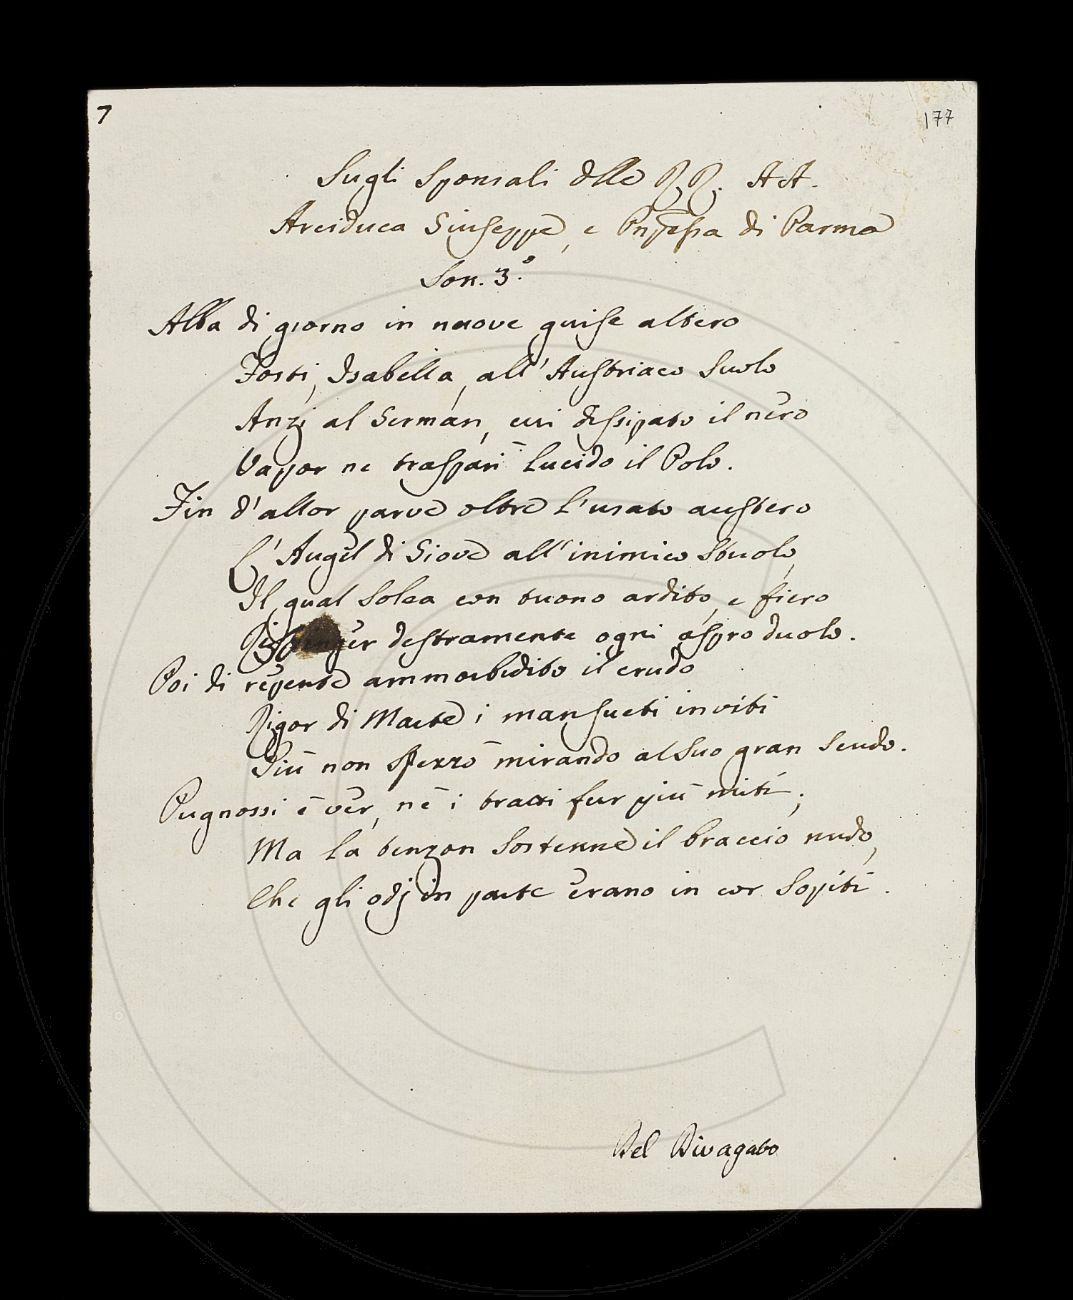 7
177
Sugli Sponsali delle RR. AA.
Arciduca Giuseppe, e Pnpessa di Parma
Son. 3.°
Alba di giorno in nuove guise altero
Fosti, Isabella, all'Austriaco Suolo
Anzi al German, cui dissipato il nero
Vapor ne traspari lucido il Polo.
Fin d'allor parve oltre l'usato austero
L'Augel di Giove all'inimico Stuolo,
Il qual solea con tuono ardito, e fiero
destramente ogni aspro duolo.
Poi di repente ammorbidito il crudo
Rigor di Marte i mansueti inviti
Più non sprezzò mirando al suo gran Scudo.
Pugnossi è ver, nè i tratti fur più miti;
Ma la tenzon Sostenne il braccio nudo,
Che gli odj in parte erano in cor Sopiti.
Del Divagato